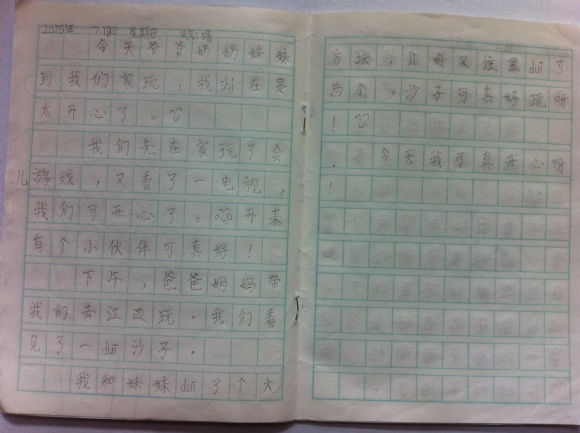 2015年 7月18日 星期日 晴
今天爷爷奶奶妹妹
到我们家玩，我shi在是
太开心了。
我们先在家玩了会
儿游戏，又看了一电视，
我们可开心了。开来
有个小伙伴可真好！
下午，爸爸妈妈带
我们去江边玩。我们看
见了一dui沙子，
我和妹妹dui了个大
方块，后又往里dui了
两个。沙子可真好玩呀
！
今天我可真开心呀
！